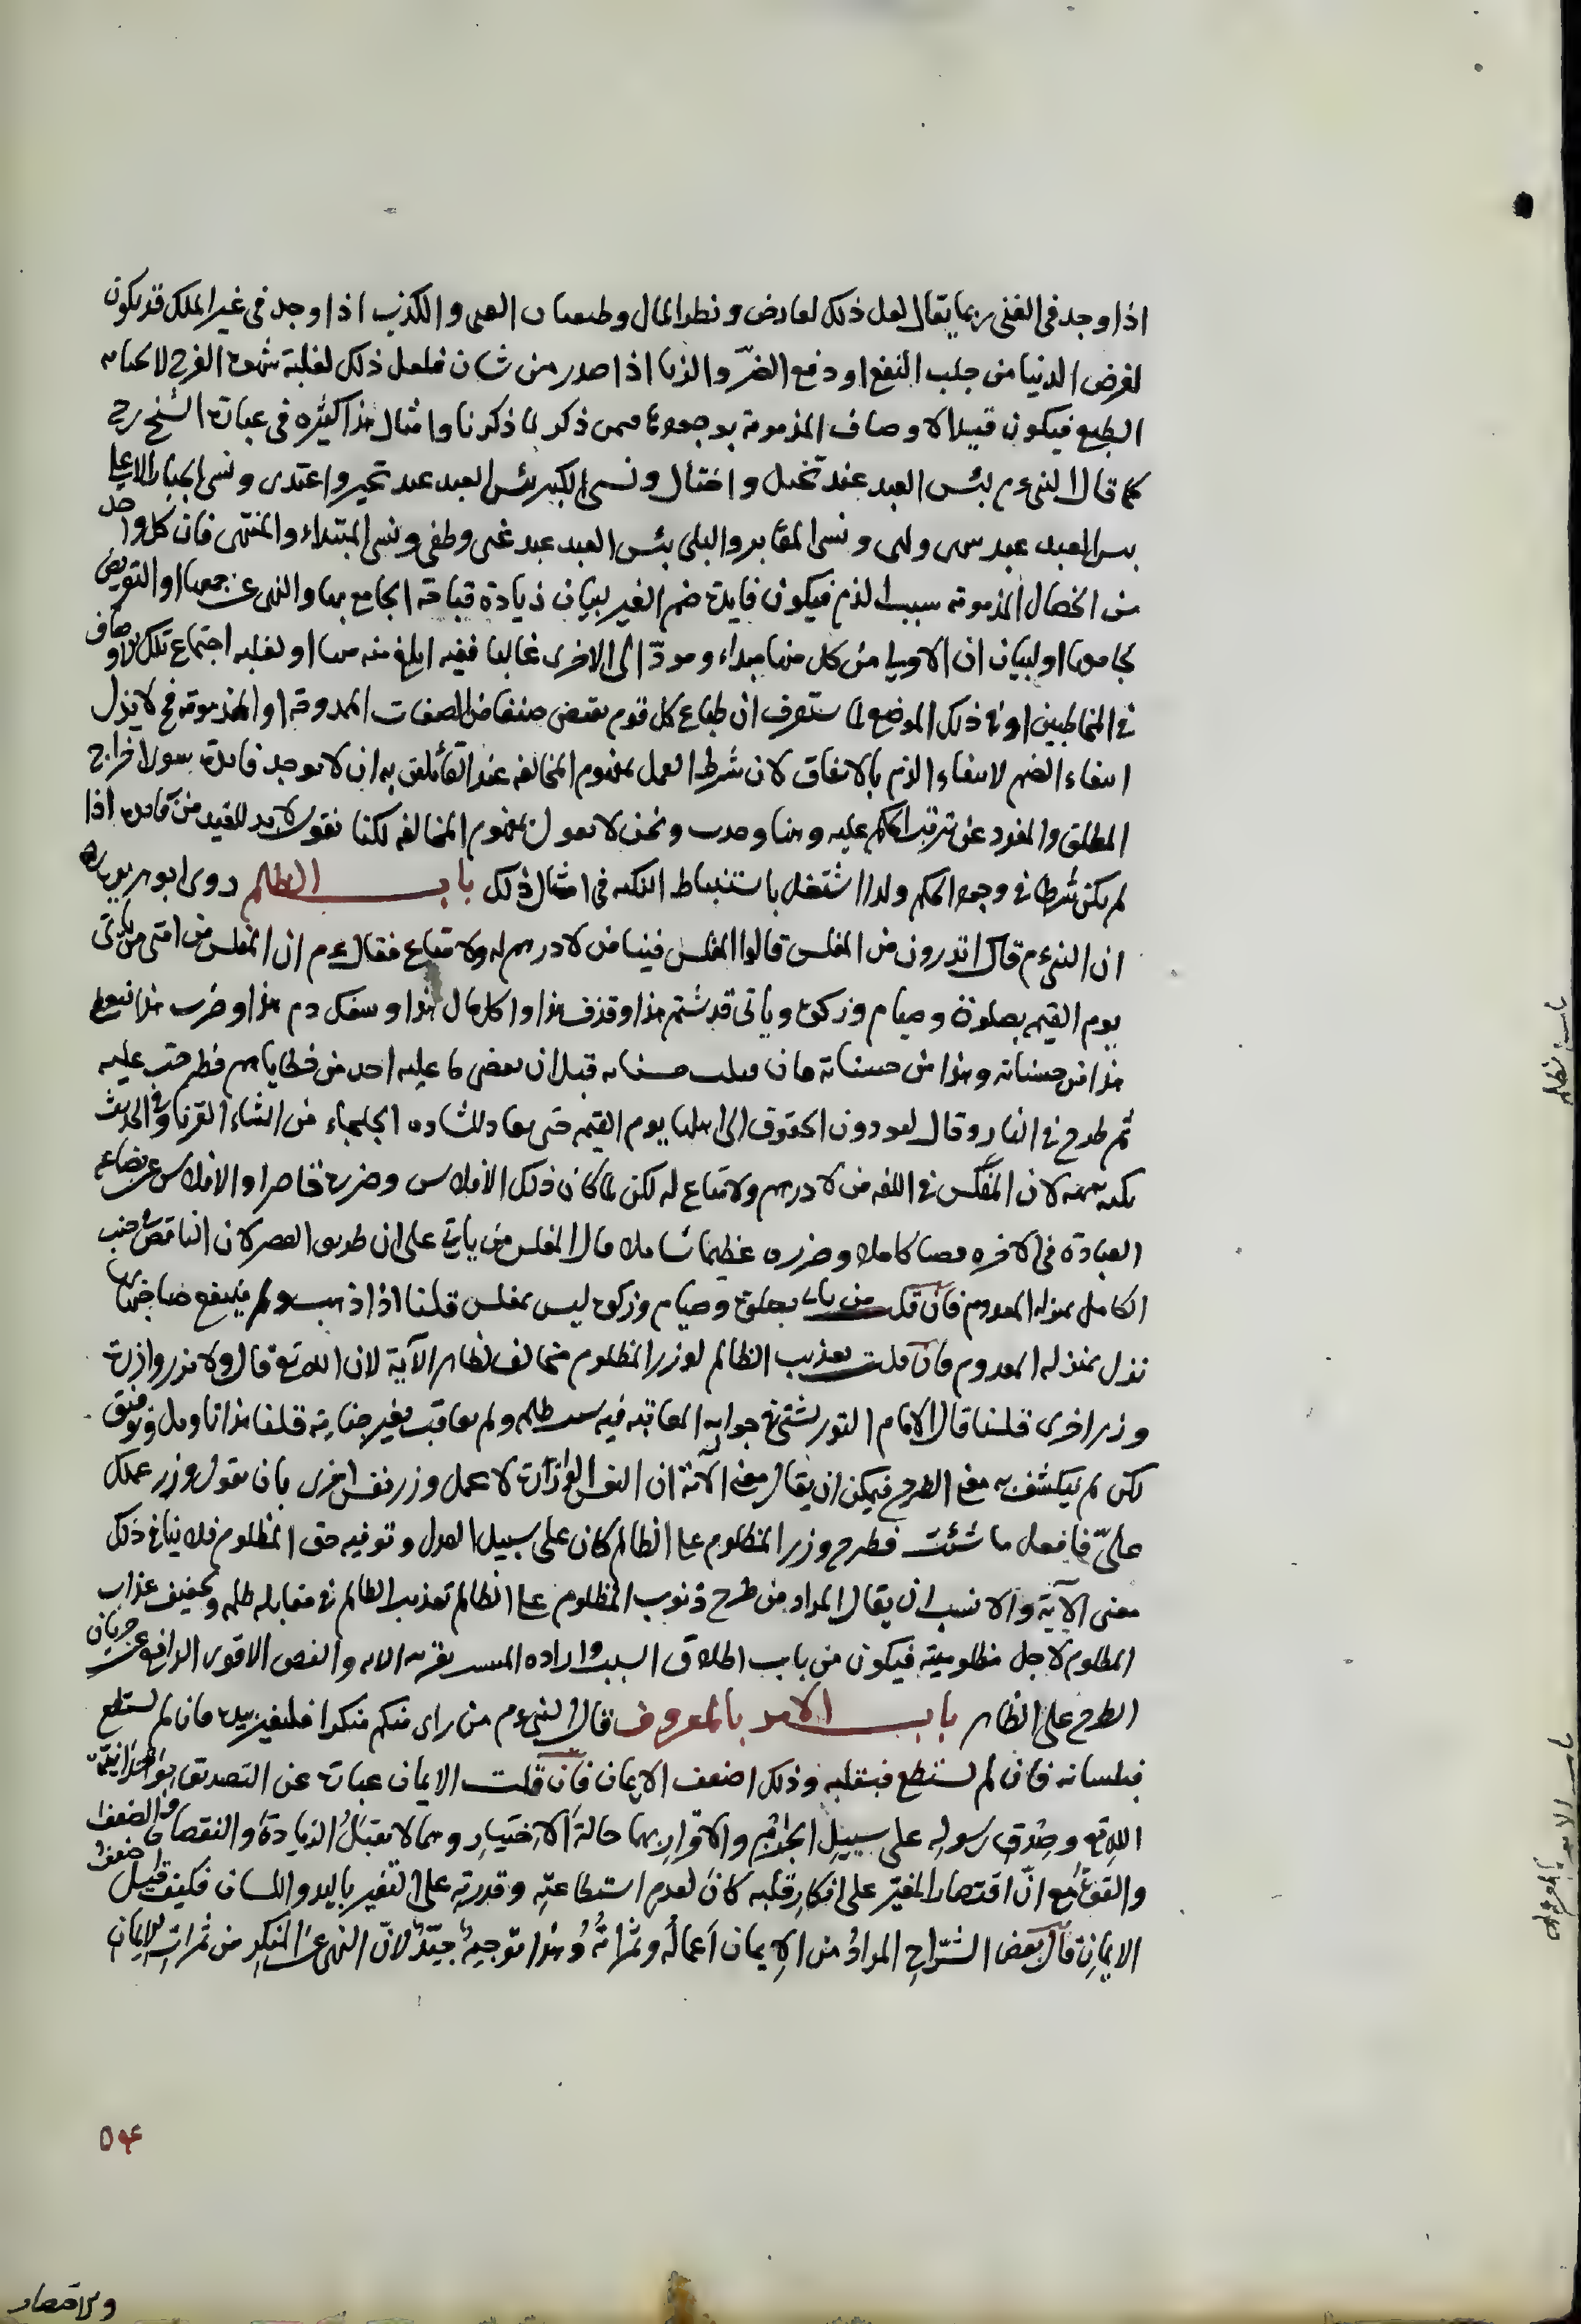 اذا وجد فى الغنى ربما يقال لعل ذلك لعارض و نظر المال و العى و الكذب اذا وجد فى غير الملك قد يكون
لغرض الدنيا من جلب النفع او دفع الضرّ و الزنا اذا صدر من شان فلعل ذلك لغلبة شهوة الفرج لا
الطبع فيكون قيد الاوصاف المذمومة بوجودها ذكر لما ذكرنا و امثال هذا كثيره فى عبارة الشيخ رح
كما قال النبى عم بئس العبد عبد تخيل و اختال و نسى الكبير بئس العبد عبد تجبر و اعتدى و نسى الجبار الاعلى
بئس العبد عبد سهى و لهى و نسى المقابر و البلى بئس العبد عبد عتى و طغى و نسى المبتداء و المنتهى فان كل واحد
من الخصال المذمومة سبب الذم فيكون فايدة ضم الغير لبيان زيادة قباحة الجامع بها و النهى عن جمعها او التعريض
بجامعها او لبيان ان الاولى من كل منها مبداء و مودّ الى الاخرى غالبا ففيه ابلغ منه او لغلبه اجتماع تلك الاوصاف
فى المخاطبين او فى ذلك الموضع لما ستعرف ان طباع كل قوم يقتضى صنفا من الصفات الممدوحة او المذمومة فح لا يزل
انتفاء الضم لانتفاء الذم بالاتفاق لان شرط العمل بمفهوم المخالفه عند القائلين به ان لا يوجد فايدة سوى اخراج
المطلق و المفرد عن ترتب الحكم عليه و هنا وجدت و نحن لا نعول بمفهوم المخالفه لكنا نقول لا بد للقيد من فايدة اذا
لم يكن شرطا فى وجود الحكم و لذا اشتغل باستنباط النكته فى امثال ذلك باب الظلم روى ابو هريرة
ان النبى عم قال اتدرون من المفلس قالوا المفلس فينا من لا درهم له و لا متاع فقال عم ان المفلس من امتى من ياتى
يوم القيمه بصلوة و صيام و زكوة و ياتى قد شتم هذا و قذف هذا و اكل مال هذا و سفك دم هذا و ضرب هذا فيعطى
هذا من حسناته و هذا من حسناته فان فنيت حسناته قبل ان يقضى ما عليه اخذ من خطاياهم فطرحت عليه
ثم طرح فى النار و قال لتؤدون الحقوق الى اهلها يوم القيمه حتى يقاد للشاه الجلحاء من الشاء القرنا و فى الحديث
نكته لان المفلس فى اللغه من لا درهم و لا متاع له لكن لما كان ذلك الافلاس و ضرره قاصرا و الافلاس عن بضاعة
العبادة فى الاخره نقصا كاملا و ضرره عظيما شاملا قال المفلس من ياتى على ان طريق القصر لان الناقص فى جنب
الكامل بمنزلة المعدوم فان قلت من ياتى بصلوة و صيام و زكوة ليس بمفلس قلنا اذا ذهب و لم ينتفع صاحبها
نزل بمنزلة المعدوم فان قلت تعذيب الظالم لوزر المظلوم مخالف لظاهر الآية لان الله تع قال و لا تزر وازرة
وزر اخرى قلنا قال الامام التوربشتى فى جوابه المعاقبه فيه بسبب ظلمه و لم يعاقب بغير جنايته قلنا هذا تاويل و توفيق
لكن لم ينكشف به معنى الطرح فيمكن ان يقال معنى الآية ان النفس الوازرة لا تحمل وزر نفس اخرى بان يقول وزر عملك
علىّ فافعل ما شئت فطرح وزر المظلوم على الظالم كان على سبيل العدل و توفيه حق المظلوم فلا ينافى ذلك
معنى الآية و الانسب ان يقال المراد من طرح ذنوب المظلوم على الظالم تعذيب الظالم فى مقابلة ظلمه و تخفيف عذاب
المظلوم لاجل مظلوميته فيكون من باب اطلاق السبب و اراده المسبب بقرينه الايه و النص الاقوى الدافع عن جريان
الطرح على الظاهر باب الامر بالمعروف قال النبى عم من راى منكم منكرا فليغير بيده فان لم يستطع
فبلسانه فان لم يستطع فبقلبه و ذلك اضعف الايمان فان قلت الايمان عبارة عن التصديق بوحدانية
الله تع و صدق رسوله على سبيل الجزم و الاقرار بهما حالة الاختيار و هما لا يقبل الزيادة و النقصان و الضعف
و القوة مع انّ اقتصار المغيّر على انكار قلبه كان لعدم استطاعته و قدرته على التغير باليد و اللسان فكيف قيل اضعف
الايمان قال بعض الشرّاح المراد من الايمان اعماله و ثمراته و هذا توجيه جيّد لانّ النهى عن المنكر من ثمرات الايمان
٥٤
و الاقتصار
باب الظلم
باب الامر بالمعروف